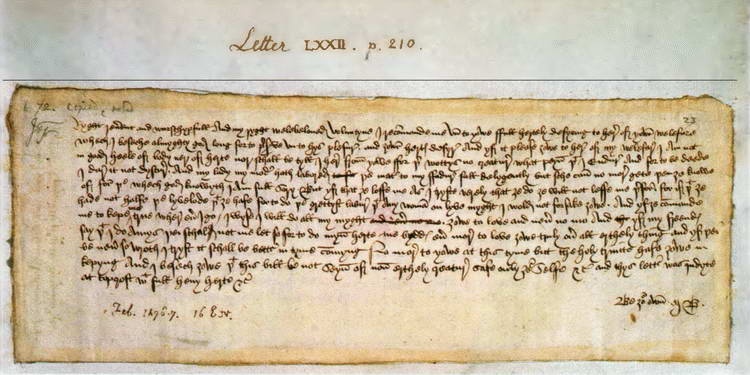 Letter LXXII. p. 210.
23
Ryght reverent and wurschypfull and my ryght welebeloved Voluntyne I recomande me vn to yowe ffull hertely desyring to here of yowr welefare
whech I beseche almyghty god long for to preserve vn to hys plesur and yowr hertys desyre And yf it please yowe to here of my welefare I am not
in good heele of body ner of herte nor schall be tyll I here from yowe for þer wottys no creatur what peyn þt I endure And for to be deede
I dare it not dyscur And my lady my moder hath labored þe mater to my fadur full delygently but sche can no more gete þen ye knowe
of for þe whech god knowyth I am full sory But yf that ye loffe me as I tryste verely that ye do ye will not leffe me þerfor for if þt ye
hade not halfe þe lyvelode þt ye hafe for to do þe grettyst labur þt any woman on lyve myght I wold not forsake yowe And yf ye comande
me to kepe me true wher euer I go I wyse I will do all my myght yowe to love and neuer no mo And yf my freendys
sey þt I do amys þei schal not me let so for to do myn herte me byddys euer more to love yowe truly ouer all erthely thing And yf þei
be neuer so wroth I tryst it schall be better in tyme comyng No more to yowe at this tyme but the holy trinite hafe yowe in
kepyng And I besech yowe þt this bill be not seyn of non erthely creatur safe only yor selfe &c And thys letter was indyte
at Topcroft wt full hevy herte &c
Be yor own M B
Feb. 1476-7. 16 E.4.